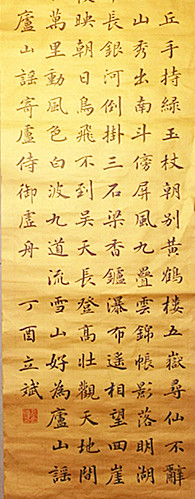 丘手持綠玉杖朝別黃鶴樓五嶽尋仙不辭
山秀出南斗傍屏風九疊雲錦帳影落明湖
長銀河倒掛三石梁香鑪瀑布遙相望回崖
映朝日鳥飛不到吳天長登高壯觀天地間
萬里動風色白波九道流雪山好為廬山謠
廬山謠寄廬侍御虛舟 丁酉立斌